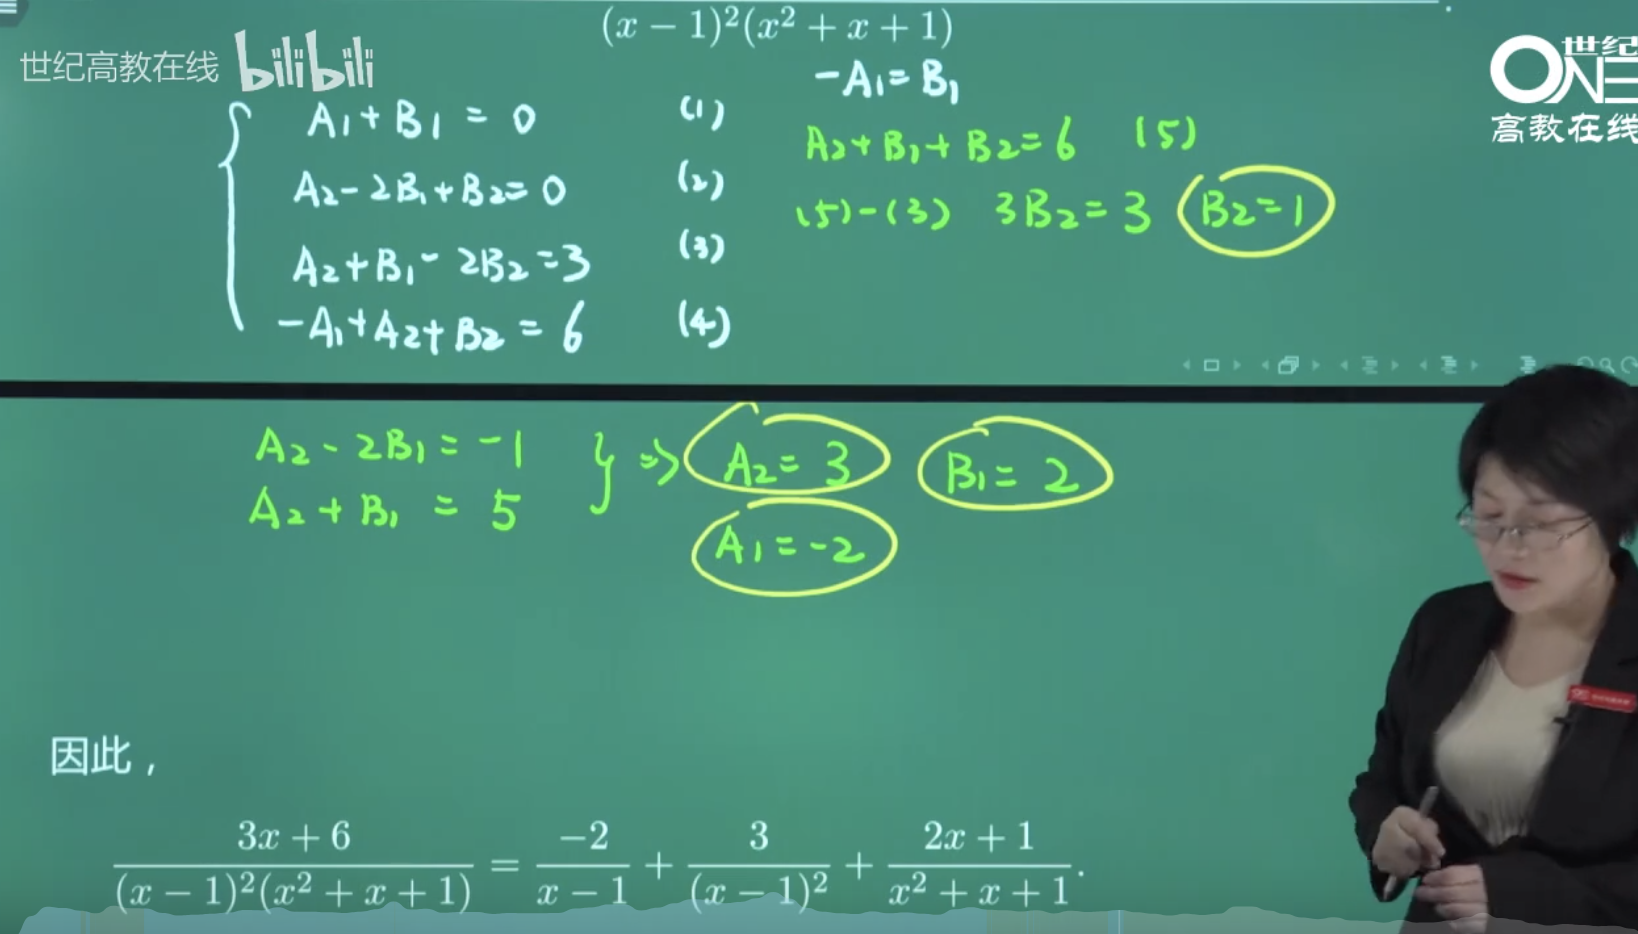 (x − 1)²(x² + x + 1)
世纪高教在线 bilibili
世纪
ONE
高教在线
−A₁ = B₁
A₁ + B₁ = 0 (1)
A₂ − 2B₁ + B₂ = 0 (2)
A₂ + B₁ − 2B₂ = 3 (3)
−A₁ + A₂ + B₂ = 6 (4)
A₂ + B₁ + B₂ = 6 (5)
(5) − (3) 3B₂ = 3 B₂ = 1
A₂ − 2B₁ = −1
A₂ + B₁ = 5
} ⇒ A₂ = 3 B₁ = 2
A₁ = −2
因此，
(3x + 6)/((x − 1)²(x² + x + 1)) = (−2)/(x − 1) + 3/((x − 1)²) + (2x + 1)/(x² + x + 1).